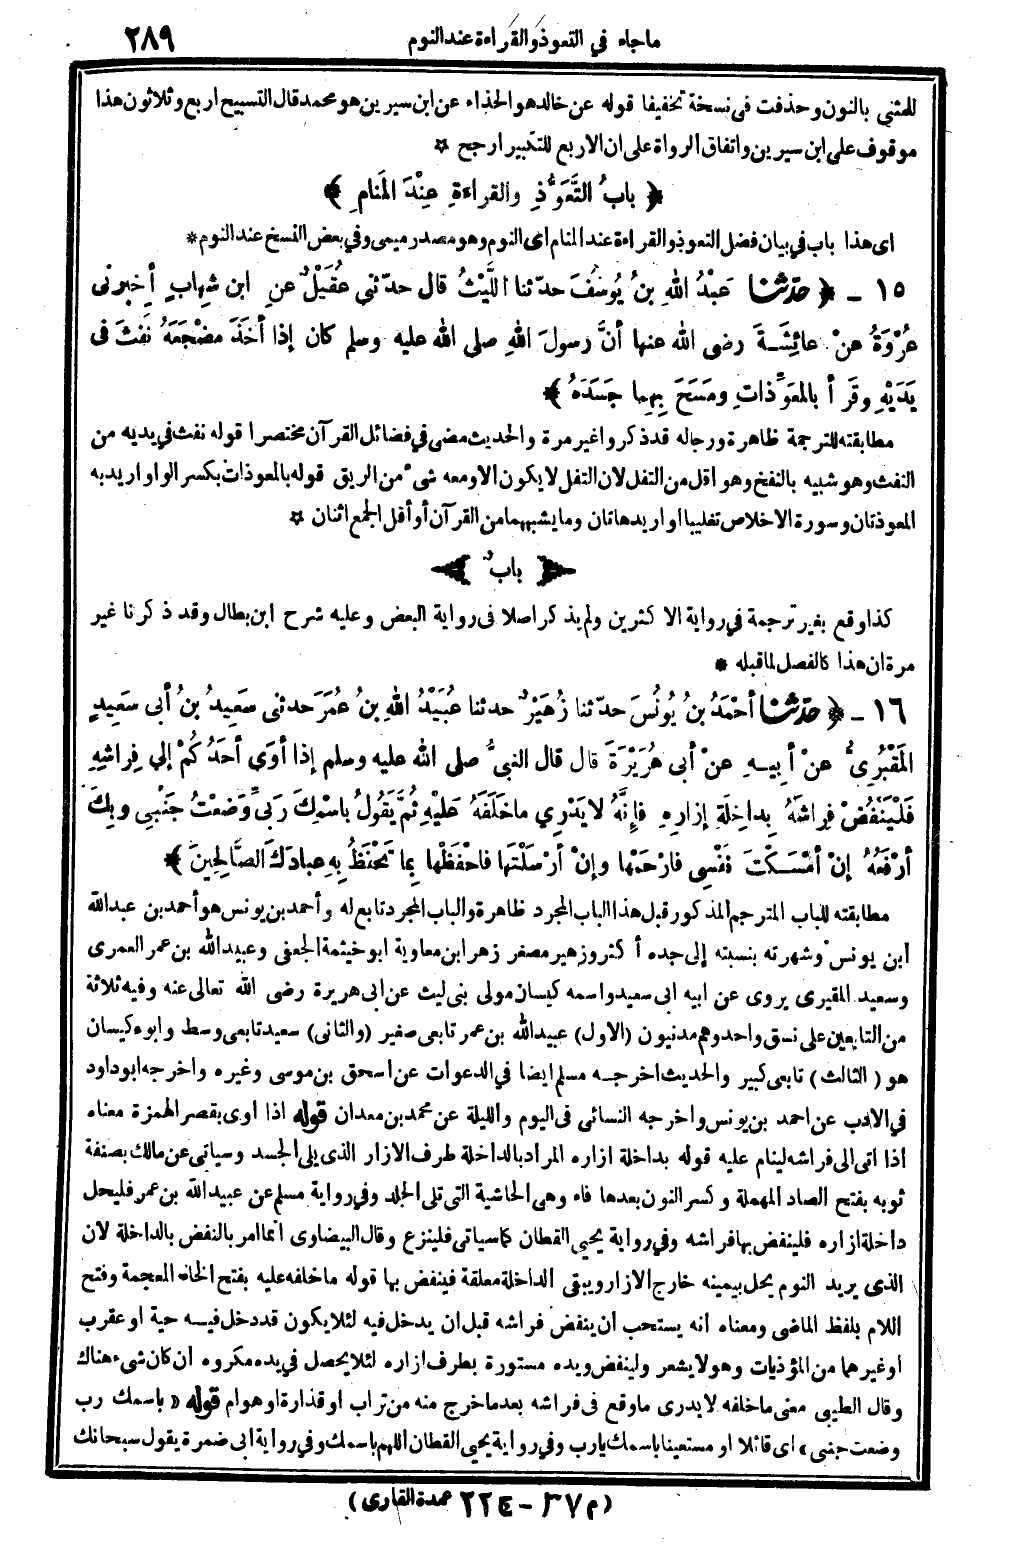 ماجاء في التعوذ والقراءة عند النوم ٢٨٩
للمثنى بالنون وحذفت في نسخة تخفيفا قوله عن خالد هو الحذاء عن ابن سيرين هو محمد قال التسبيح اربع وثلاثون هذا
موقوف على ابن سيرين واتفاق الرواة على ان الاربع للتكبير ارجح ✡
﴿ بابُ التَّعَوُّذِ والقراءةِ عِنْدَ المَنامِ ﴾
اى هذا باب في بيان فضل التعوذ والقراءة عند المنام اى النوم وهو مصدر ميمى وفي بعض النسخ عند النوم *
١٥ - ﴿ حدّثنا عَبْدُ اللهِ بنُ يُوسُفَ حدّثنا اللَّيْثُ قال حدّثني عُقَيْلٌ عنِ ابن شِهابٍ أخبرنى
عُرْوَةُ عنْ عائِشَةَ رضى الله عنها أنَّ رسولَ اللهِ صلى الله عليه وسلم كان إذا أخَذَ مضْجَعَهُ نَفَثَ في
يَدَيْهِ وقَرَأ بالمُعَوِّذاتِ ومَسَحَ بِهِما جَسَدَهُ ﴾
مطابقته للترجمة ظاهرة ورجاله قد ذكروا غير مرة والحديث مضى في فضائل القرآن مختصرا قوله نفث في يديه من
النفث وهو شبيه بالنفخ وهو اقل من التفل لان التفل لا يكون الا ومعه شىء من الريق قوله بالمعوذات بكسر الواو اريد به
المعوذتان وسورة الاخلاص تغليبا او اريد هاتان وما يشبههما من القرآن أو أقل الجمع اثنان ✡
بابٌ
كذا وقع بغير ترجمة في رواية الاكثرين ولم يذكر اصلا في رواية البعض وعليه شرح ابن بطال وقد ذكرنا غير
مرة ان هذا كالفصل لما قبله *
١٦ - ﴿ حدّثنا أحْمَدُ بنُ يُونُسَ حدّثنا زُهَيْرٌ حدثنا عُبَيْدُ اللهِ بنُ عُمَرَ حدثنى سَعِيدُ بنُ أبى سَعِيدٍ
المَقْبُرِىُّ عنْ أبِيهِ عنْ أبى هُرَيْرَةَ قال قال النبىُّ صلى الله عليه وسلم إذا أوَى أحَدُكُمْ إلي فِراشِهِ
فَلْيَنْفُضْ فِراشَهُ بِداخِلَةِ إزارِهِ فإنَّهُ لا يَدْرِي ما خَلَفَهُ عَلَيْهِ ثُمَّ يَقُولُ باسْمِكَ رَبِّى وَضَعْتُ جَنْبِي وبِكَ
أرْفَعُهُ إنْ أمْسَكْتَ نَفْسِي فارْحَمْها وإنْ أرْسَلْتَها فاحْفَظْها بِما تَحْفَظُ بِهِ عِبادَكَ الصَّالِحِينَ ﴾
مطابقته للباب المترجم المذكور قبل هذا الباب المجرد ظاهرة والباب المجرد تابع له وأحمد بن يونس هو أحمد بن عبدالله
ابن يونس وشهرته بنسبته إلى جده أكثر وزهير مصغر زهر ابن معاوية ابو خيثمة الجعفى وعبيدالله بن عمر العمرى
وسعيد المقبرى يروى عن ابيه ابى سعيد واسمه كيسان مولى بنى ليث عن ابى هريرة رضى الله تعالى عنه وفيه ثلاثة
من التابعين على نسق واحد وهم مدنيون (الاول) عبيدالله بن عمر تابعى صغير (والثانى) سعيد تابعى وسط وابوه كيسان
هو (الثالث) تابعى كبير والحديث اخرجه مسلم ايضا في الدعوات عن اسحق بن موسى وغيره واخرجه ابوداود
في الادب عن احمد بن يونس واخرجه النسائى في اليوم والليلة عن محمد بن معدان قوله اذا اوى بقصر الهمزة معناه
اذا اتى الى فراشه لينام عليه قوله بداخلة ازاره المراد بالداخلة طرف الازار الذى يلى الجسد وسياتى عن مالك بصنفة
ثوبه بفتح الصاد المهملة وكسر النون بعدها فاء وهى الحاشية التى تلى الجلد وفي رواية مسلم عن عبيدالله بن عمر فليحل
داخلة ازاره فلينفض بها فراشه وفي رواية يحيى القطان كما سياتى فلينزع وقال البيضاوى انما امر بالنفض بالداخلة لان
الذى يريد النوم يحل بيمينه خارج الازار ويبقى الداخلة معلقة فينفض بها قوله ما خلفه عليه بفتح الخاء المعجمة وفتح
اللام بلفظ الماضى ومعناه انه يستحب أن ينفض فراشه قبل ان يدخل فيه لئلا يكون قد دخل فيه حية او عقرب
او غيرهما من المؤذيات وهو لا يشعر ولينفض ويده مستورة بطرف ازاره لئلا يحصل في يده مكروه ان كان شىء هناك
وقال الطيبى معنى ما خلفه لا يدرى ما وقع في فراشه بعد ما خرج منه من تراب او قذارة او هوام قوله « باسمك رب
وضعت جنبى » اى قائلا او مستعينا باسمك يارب وفي رواية يحيى القطان اللهم باسمك وفي رواية ابى ضمرة يقول سبحانك
(م ٣٧ - ٢٢٤ عمدة القارى)